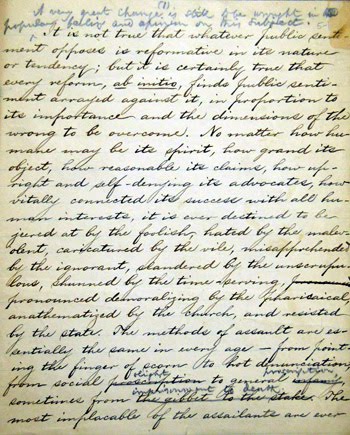 A very great change is still to be wrought in the
(1)
popular belief and opinion on a subject
It is not true that whatever public senti-
ment opposes is reformative in its nature
or tendency; but it is certainly true that
every reform, ab initio, finds public senti-
ment arrayed against it, in proportion to
its importance and the dimensions of the
wrong to be overcome. No matter how hu-
mane may be its spirit, how grand its
object, how reasonable its claims, how up-
right and self-denying its advocates, how
vitally connected its success with all hu-
man interests, it is ever destined to be
jeered at by the foolish, hated by the malev-
olent, caricatured by the vile, misapprehended
by the ignorant, slandered by the unscrupu-
lous, shunned by the time-serving,
pronounced demoralizing by the pharisaical,
anathematized by the church, and resisted
by the state. The methods of assault are es-
sentially the same in every age — from point-
ing the finger of scorn to hot denunciation,
slight proscription
from social proscription to general infamy,
imprisonment to death
sometimes from the gibbet to the stake. The
most implacable of the assailants are ever